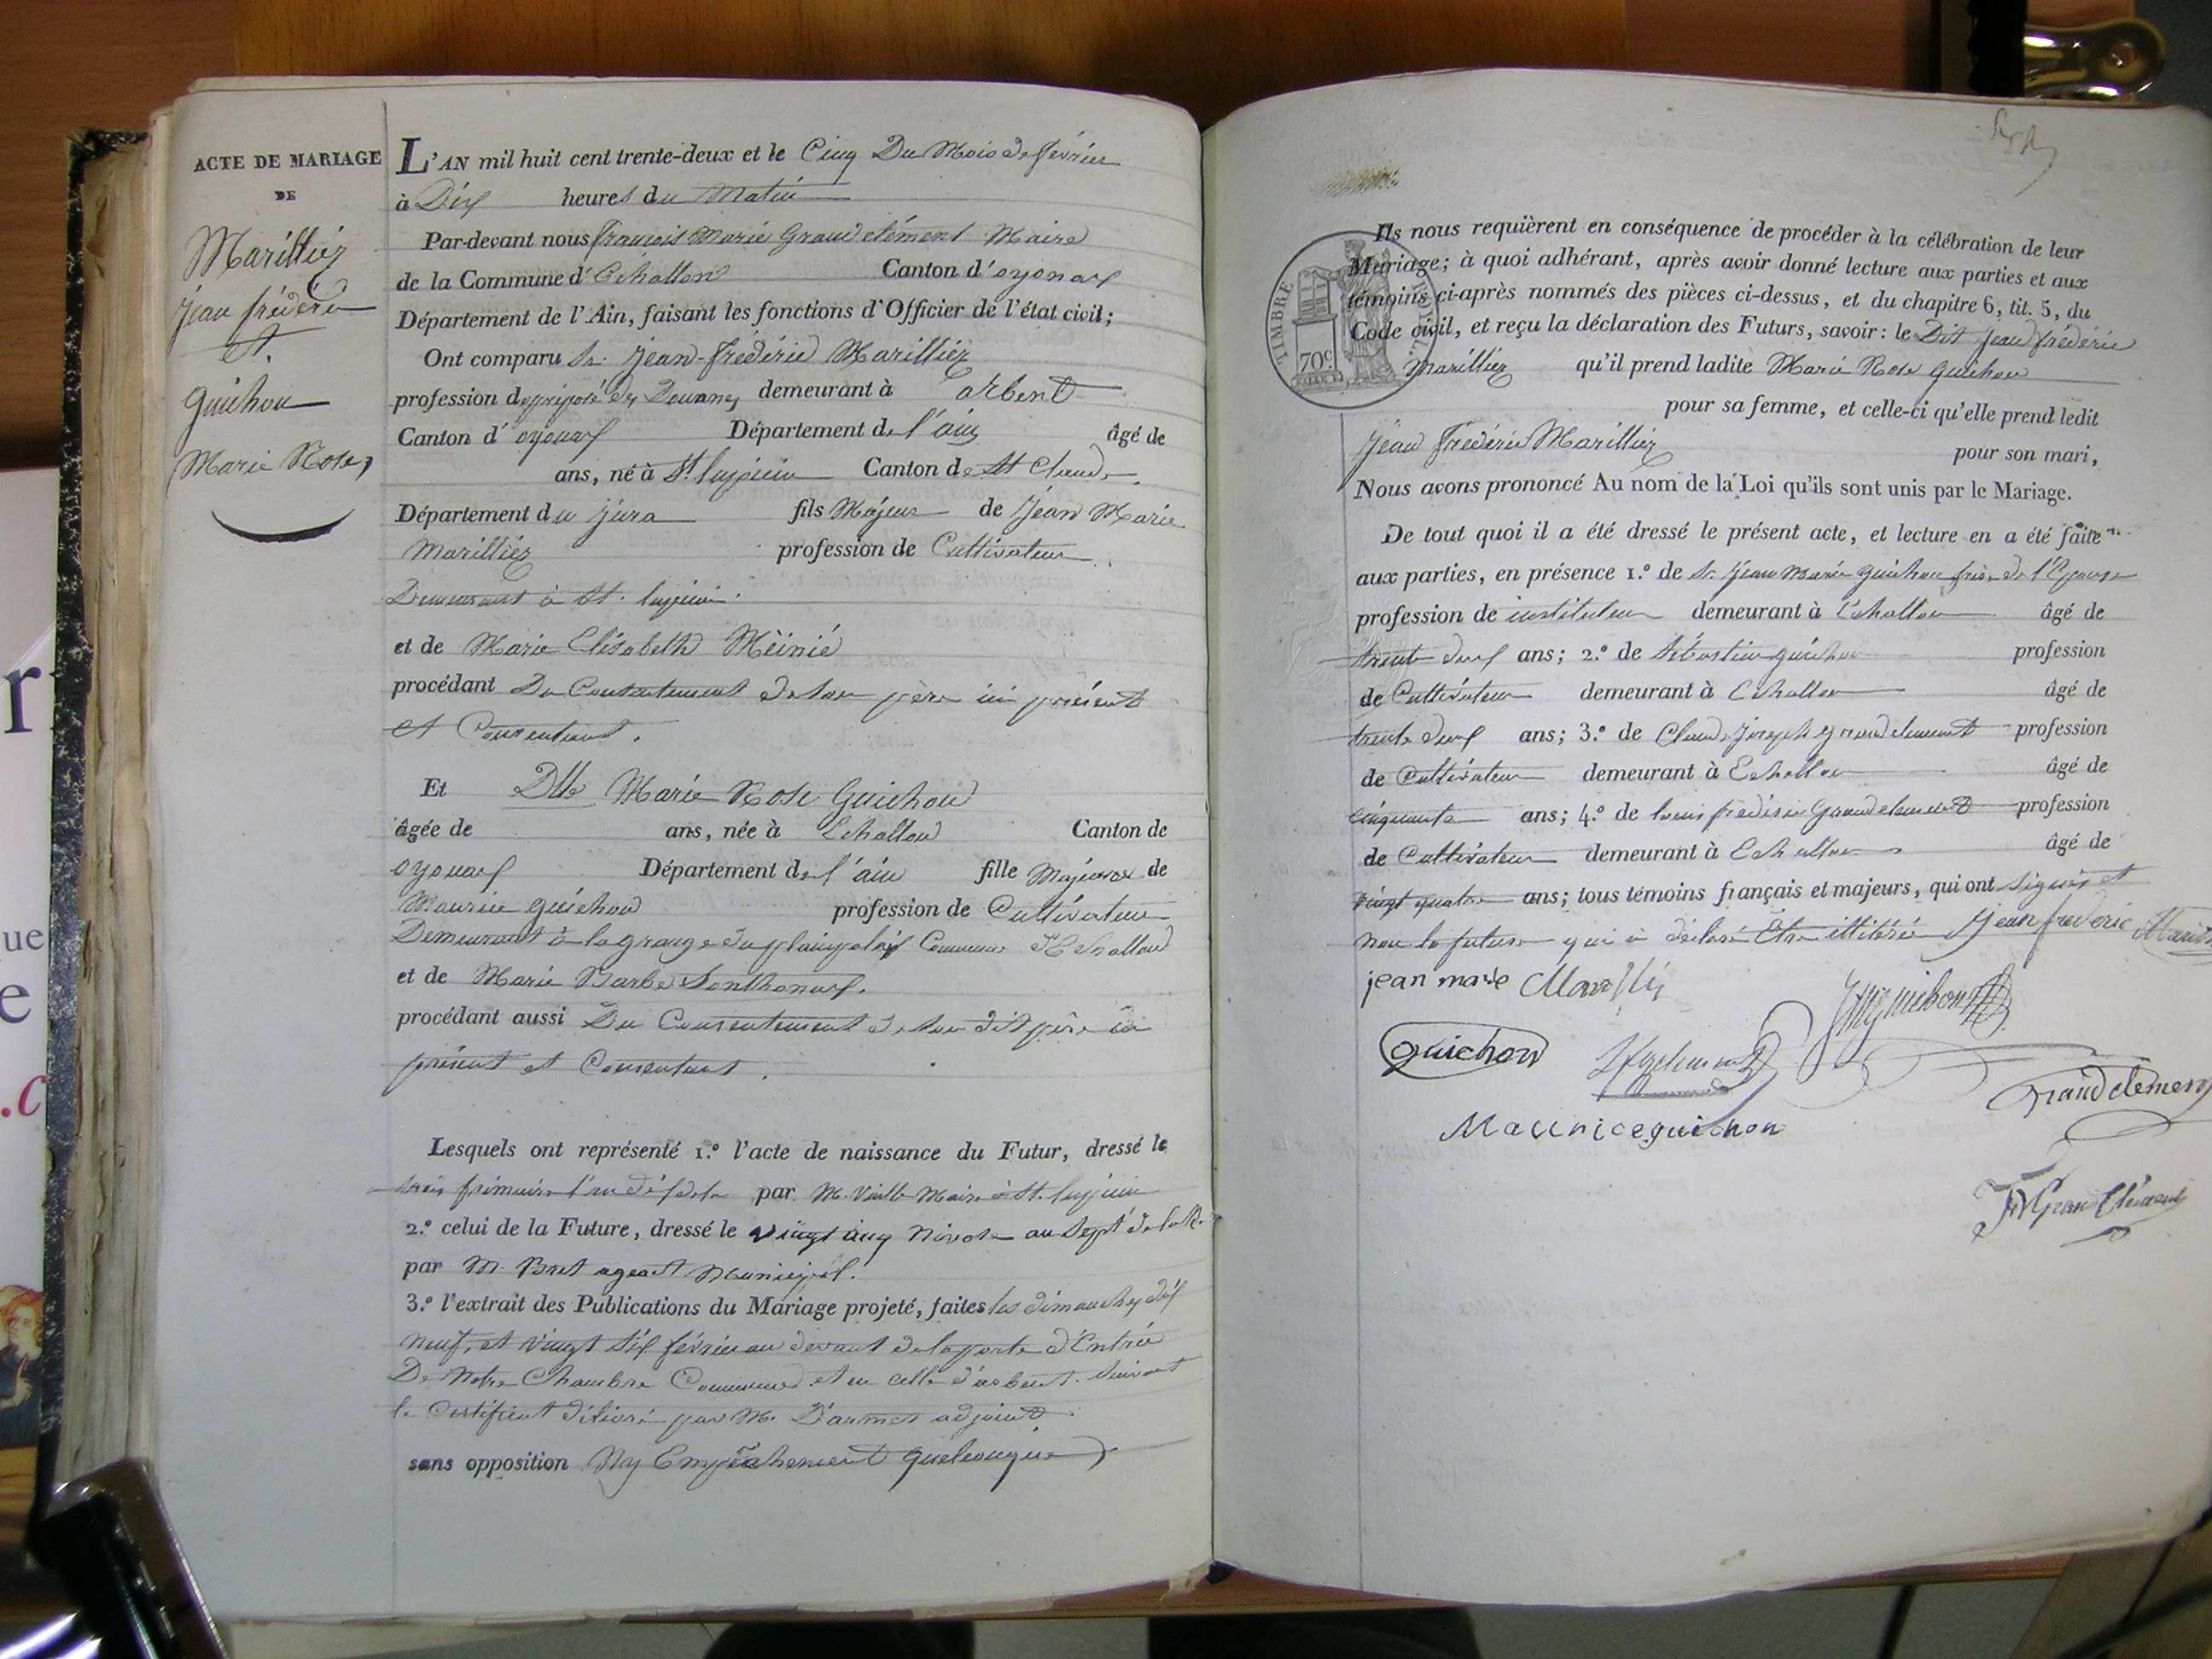 ACTE DE MARIAGE
DE
Marilliez
Jean frédéric
et
Guichon
Marie Rose
L'AN mil huit cent trente-deux et le Cinq Du Mois de février
à Dix heures du Matin
Par-devant nous françois Marie Grandclément Maire
de la Commune d'Echallon Canton d'oyonax
Département de l'Ain, faisant les fonctions d'Officier de l'état civil;
Ont comparu Sr. Jean-frédéric Marilliez
profession de préposé des Douanes demeurant à arbent
Canton d'oyonax Département de l'ain âgé de
ans, né à St. lupicin Canton de St Claude
Département du jura fils Majeur de Jean Marie
Marilliez profession de Cultivateur
Demeurant à St. lupicin
et de Marie Elisabeth Meinié
procédant Du Consentement de son père ici présent
et Consentant.
Et Dlle Marie Rose Guichon
âgée de ans, née à Echallon Canton de
oyonax Département de l'ain fille Majeure de
Maurice guichon profession de Cultivateur
Demeurant à la grange du Commune d'Echallon
et de Marie Barbe Sonthonax.
procédant aussi Du Consentement de son dit père ici
présent et Consentant.
Lesquels ont représenté 1.º l'acte de naissance du Futur, dressé le
trois frimaire l'an par M. Maire à St. lupicin
2.º celui de la Future, dressé le vingt cinq Nivose an Sept de la R.
par M. Bret agent Municipal.
3.º l'extrait des Publications du Mariage projeté, faites les dimanches dix
neuf, et vingt six février au devant de la porte d'Entrée
De Notre Chambre Commune et en celle d'arbent. Suivant
le Certificat délivré par M. Darmet adjoint
sans opposition Ny Empêchement quelconque
Ils nous requièrent en conséquence de procéder à la célébration de leur
Mariage; à quoi adhérant, après avoir donné lecture aux parties et aux
témoins ci-après nommés des pièces ci-dessus, et du chapitre 6, tit. 5, du
Code civil, et reçu la déclaration des Futurs, savoir: le Dit Jean frédéric
Marilliez qu'il prend ladite Marie Rose guichon
pour sa femme, et celle-ci qu'elle prend ledit
Jean Frédéric Marilliez pour son mari,
Nous avons prononcé Au nom de la Loi qu'ils sont unis par le Mariage.
De tout quoi il a été dressé le présent acte, et lecture en a été faite
aux parties, en présence 1.º de Sr. Jean Marie guichon frère de l'Epouse
profession de instituteur demeurant à Echallon âgé de
trente deux ans; 2.º de Sébastien guichon profession
de Cultivateur demeurant à Echallon âgé de
trente deux ans; 3.º de Claude Joseph grandclement profession
de Cultivateur demeurant à Echallon âgé de
cinquante ans; 4.º de louis frédéric Grandclement profession
de Cultivateur demeurant à Echallon âgé de
vingt quatre ans; tous témoins français et majeurs, qui ont signés et
non la future qui a déclaré Etre illitérée Jean frederic
jean marie
JMguichon
guichon
Grandclement
Maurice guichon
TIMBRE ROYAL
70c